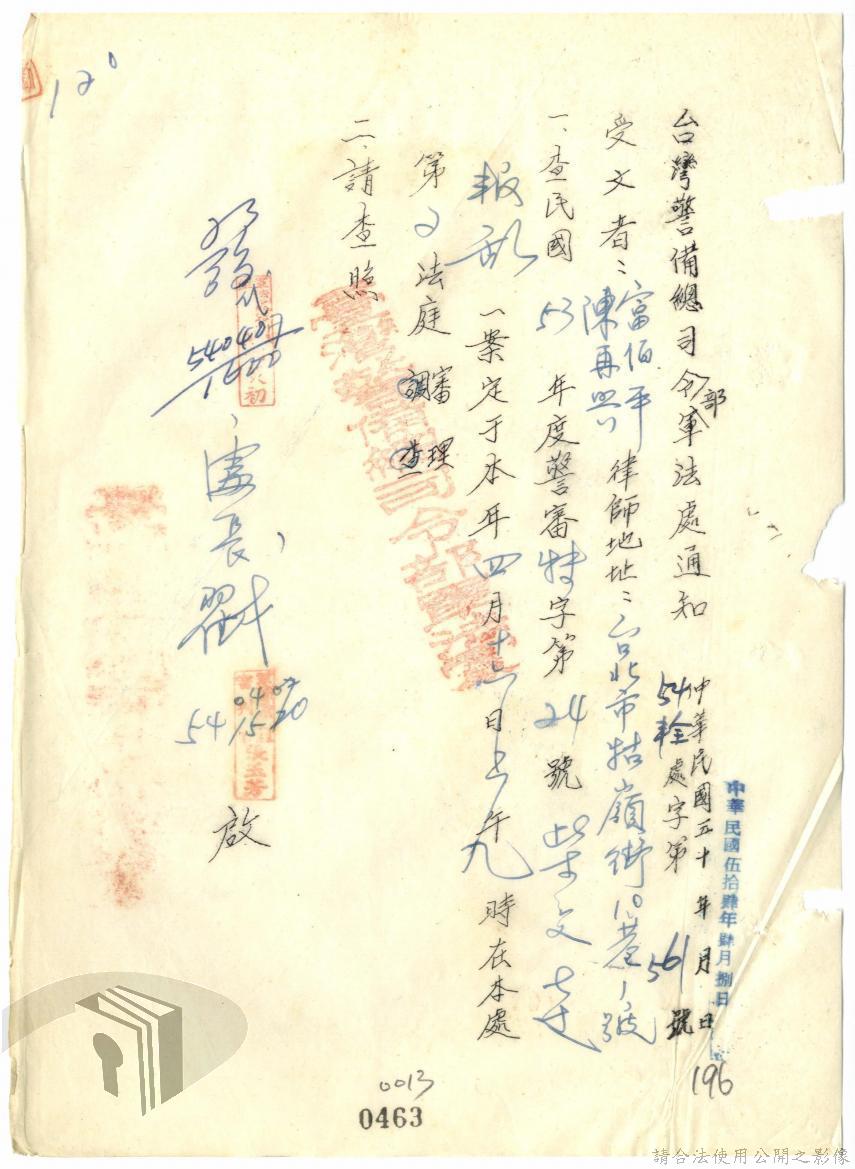 台灣警備總司令部軍法處通知
中華民國五十 年 月 日
54 處字第 561 號
中華民國伍拾肆年肆月捌日
受文者：富伯平 陳再興 律師地址：台北市牯嶺街10巷1號
一、查民國 53 年度警審特字第 24 號 柴文
報 一案定于本年四月十六日上午九時在本處
第 2 法庭 審理 調查
二、請查照
處長
啟
540407
1600
54 04 07
15 20
120
196
0013
0463
請合法使用公開之影像